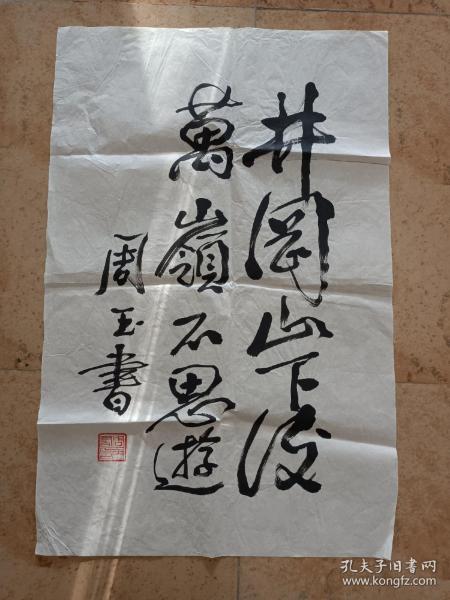 井岡山下後
萬嶺不思遊
周玉書
孔夫子旧书网
www.kongfz.com